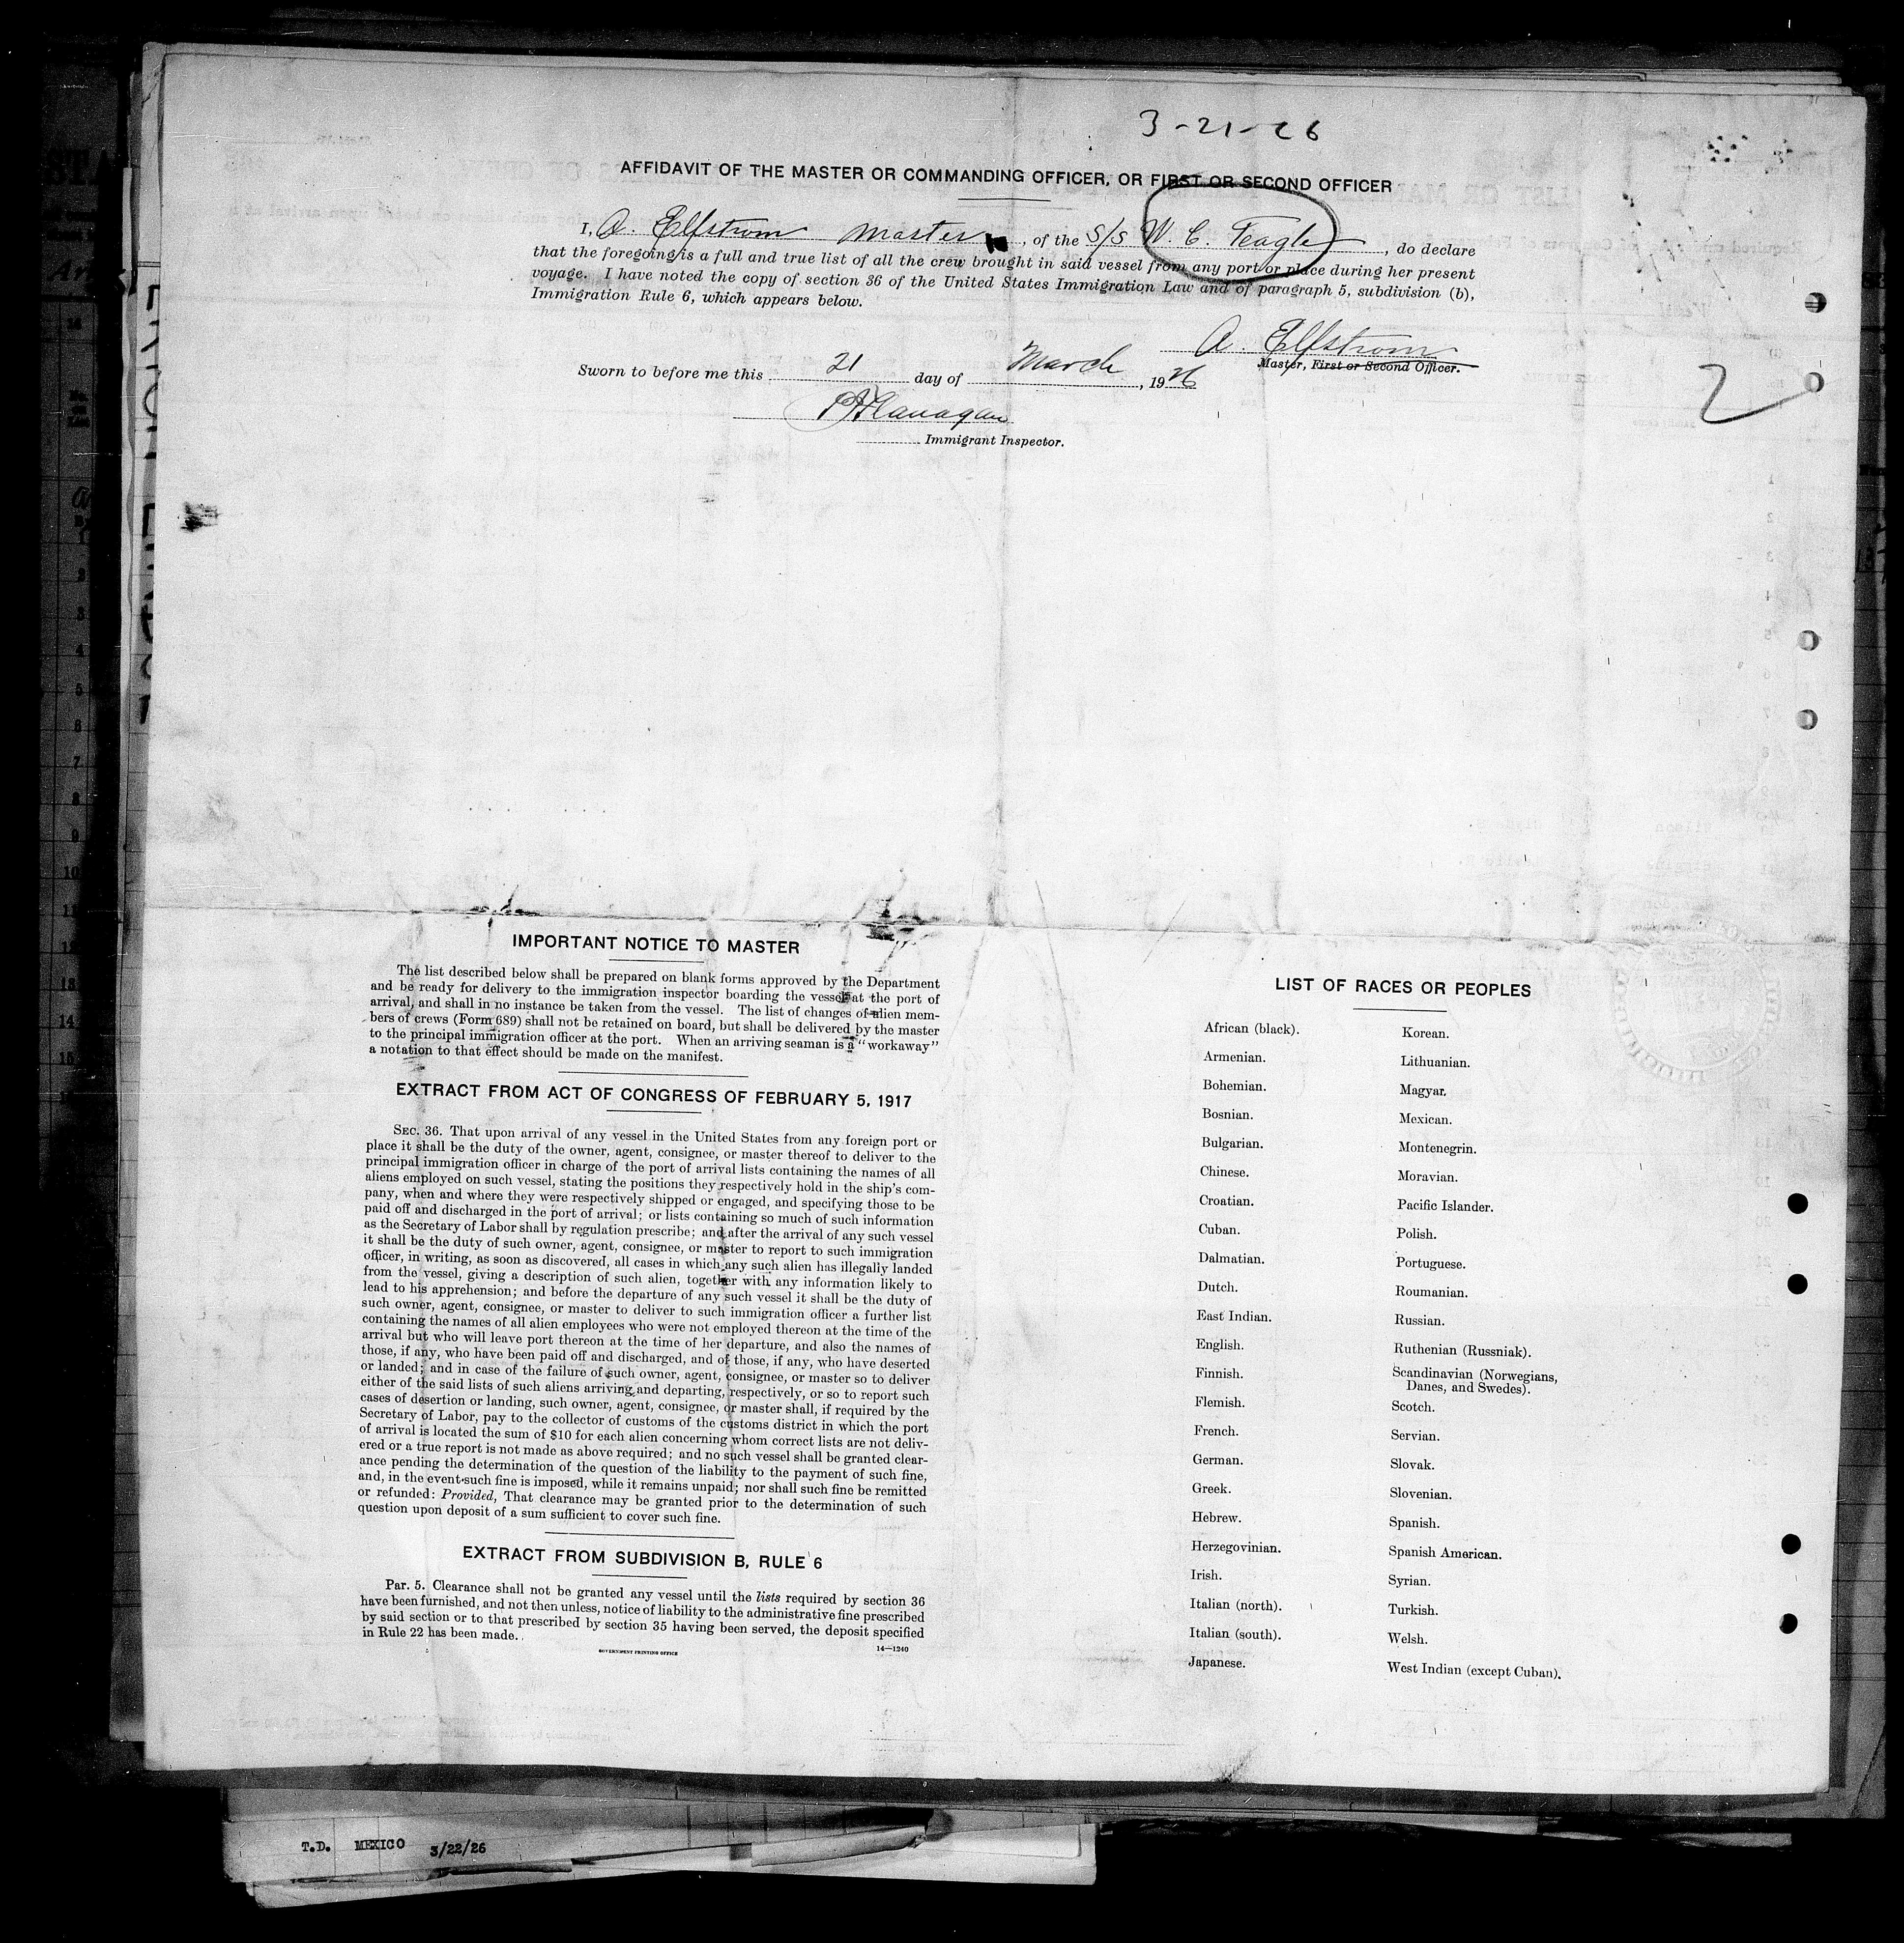 3-21-26
AFFIDAVIT OF THE MASTER OR COMMANDING OFFICER, OR FIRST OR SECOND OFFICER
I, A. Elfstrom master, of the S/S W. C. Teagle, do declare
that the foregoing is a full and true list of all the crew brought in said vessel from any port or place during her present
voyage. I have noted the copy of section 36 of the United States Immigration Law and of paragraph 5, subdivision (b),
Immigration Rule 6, which appears below.
A. Elfstrom
Master, First or Second Officer.
Sworn to before me this 21 day of March, 1926
Flanagan
Immigrant Inspector.
2
IMPORTANT NOTICE TO MASTER
The list described below shall be prepared on blank forms approved by the Department
and be ready for delivery to the immigration inspector boarding the vessel at the port of
arrival, and shall in no instance be taken from the vessel. The list of changes of alien mem-
bers of crews (Form 689) shall not be retained on board, but shall be delivered by the master
to the principal immigration officer at the port. When an arriving seaman is a "workaway"
a notation to that effect should be made on the manifest.
EXTRACT FROM ACT OF CONGRESS OF FEBRUARY 5, 1917
SEC. 36. That upon arrival of any vessel in the United States from any foreign port or
place it shall be the duty of the owner, agent, consignee, or master thereof to deliver to the
principal immigration officer in charge of the port of arrival lists containing the names of all
aliens employed on such vessel, stating the positions they respectively hold in the ship's com-
pany, when and where they were respectively shipped or engaged, and specifying those to be
paid off and discharged in the port of arrival; or lists containing so much of such information
as the Secretary of Labor shall by regulation prescribe; and after the arrival of any such vessel
it shall be the duty of such owner, agent, consignee, or master to report to such immigration
officer, in writing, as soon as discovered, all cases in which any such alien has illegally landed
from the vessel, giving a description of such alien, together with any information likely to
lead to his apprehension; and before the departure of any such vessel it shall be the duty of
such owner, agent, consignee, or master to deliver to such immigration officer a further list
containing the names of all alien employees who were not employed thereon at the time of the
arrival but who will leave port thereon at the time of her departure, and also the names of
those, if any, who have been paid off and discharged, and of those, if any, who have deserted
or landed; and in case of the failure of such owner, agent, consignee, or master so to deliver
either of the said lists of such aliens arriving and departing, respectively, or so to report such
cases of desertion or landing, such owner, agent, consignee, or master shall, if required by the
Secretary of Labor, pay to the collector of customs of the customs district in which the port
of arrival is located the sum of $10 for each alien concerning whom correct lists are not deliv-
ered or a true report is not made as above required; and no such vessel shall be granted clear-
ance pending the determination of the question of the liability to the payment of such fine,
and, in the event such fine is imposed, while it remains unpaid; nor shall such fine be remitted
or refunded: Provided, That clearance may be granted prior to the determination of such
question upon deposit of a sum sufficient to cover such fine.
EXTRACT FROM SUBDIVISION B, RULE 6
Par. 5. Clearance shall not be granted any vessel until the lists required by section 36
have been furnished, and not then unless, notice of liability to the administrative fine prescribed
by said section or to that prescribed by section 35 having been served, the deposit specified
in Rule 22 has been made.
GOVERNMENT PRINTING OFFICE 14—1240
LIST OF RACES OR PEOPLES
African (black).
Armenian.
Bohemian.
Bosnian.
Bulgarian.
Chinese.
Croatian.
Cuban.
Dalmatian.
Dutch.
East Indian.
English.
Finnish.
Flemish.
French.
German.
Greek.
Hebrew.
Herzegovinian.
Irish.
Italian (north).
Italian (south).
Japanese.
Korean.
Lithuanian.
Magyar.
Mexican.
Montenegrin.
Moravian.
Pacific Islander.
Polish.
Portuguese.
Roumanian.
Russian.
Ruthenian (Russniak).
Scandinavian (Norwegians,
Danes, and Swedes).
Scotch.
Servian.
Slovak.
Slovenian.
Spanish.
Spanish American.
Syrian.
Turkish.
Welsh.
West Indian (except Cuban).
T.D. MEXICO 3/22/26